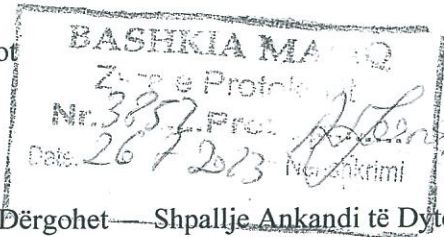 ot
BASHKIA MA Q
Z e Protok t
Nr. 3857 Prot
Date. 26 7 2023 Nënshkrimi
Dërgohet — Shpallje Ankandi të Dytë